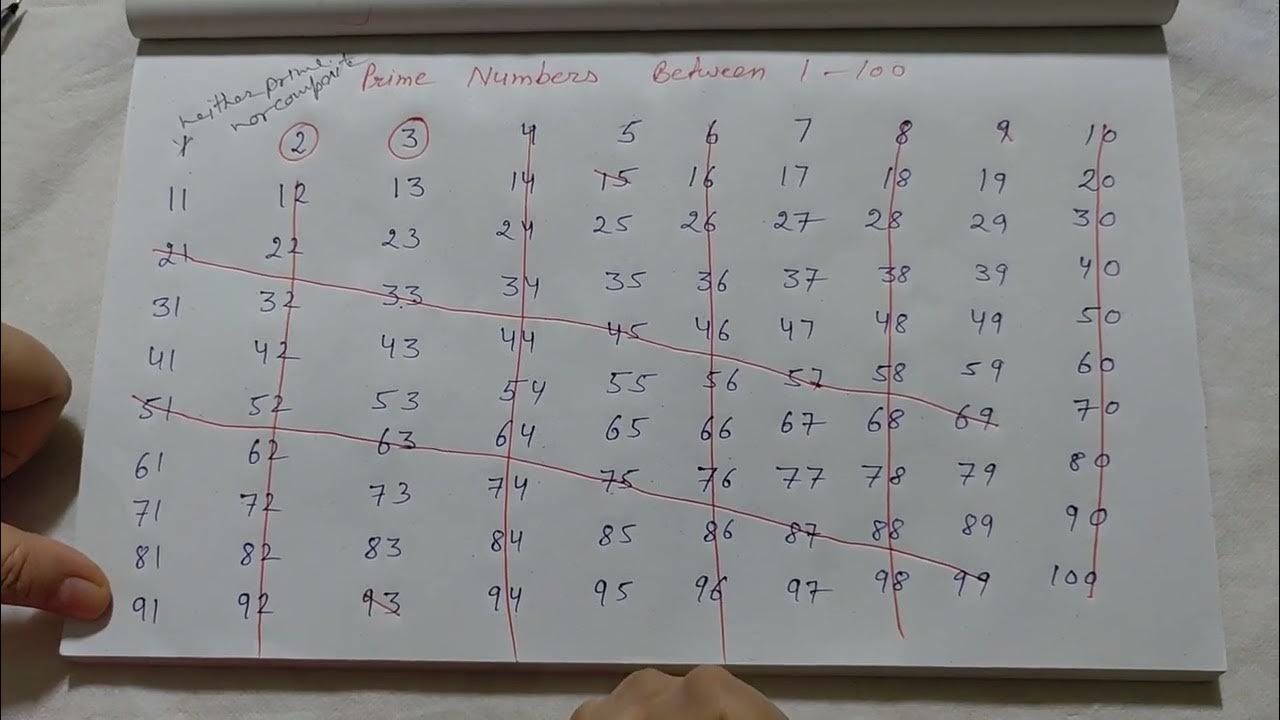 neither prime
nor composite
Prime Numbers Between 1-100
1 2 3 4 5 6 7 8 9 10
11 12 13 14 15 16 17 18 19 20
21 22 23 24 25 26 27 28 29 30
31 32 33 34 35 36 37 38 39 40
41 42 43 44 45 46 47 48 49 50
51 52 53 54 55 56 57 58 59 60
61 62 63 64 65 66 67 68 69 70
71 72 73 74 75 76 77 78 79 80
81 82 83 84 85 86 87 88 89 90
91 92 93 94 95 96 97 98 99 100